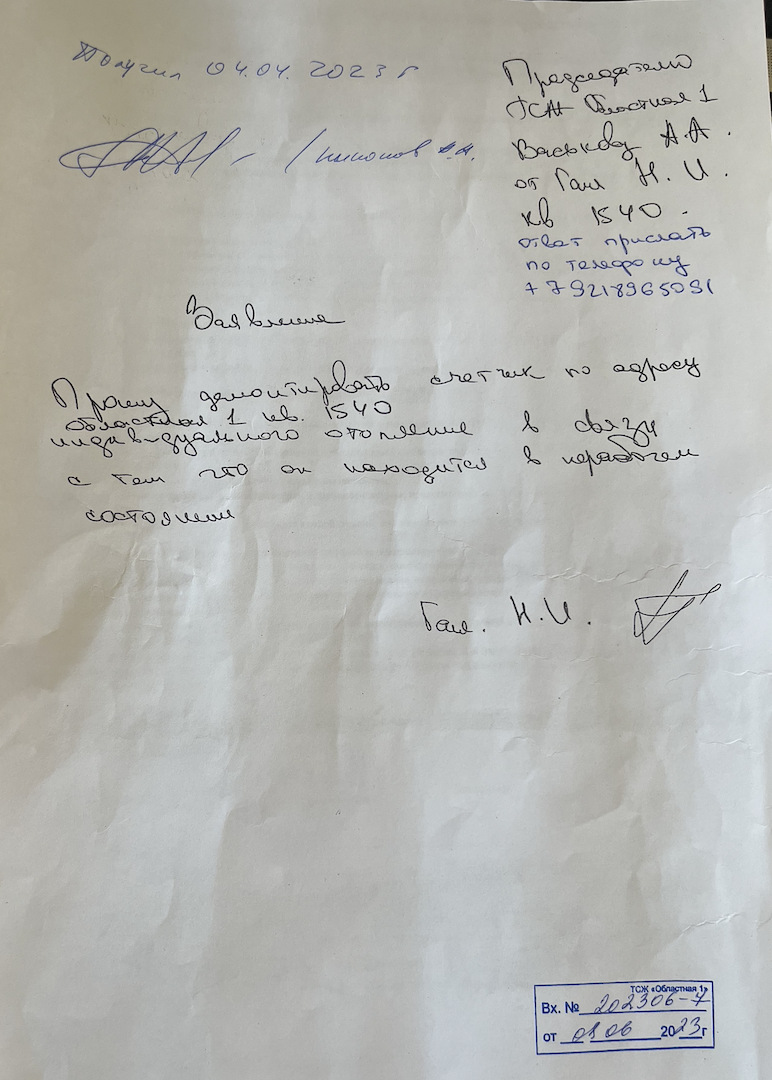 Получил 04.04.2023 г
Председателю
ТСЖ Областная 1
Васькову А.А.
от Гая Н. И.
кв 1540.
ответ прислать
по телефону
+79218965091
Заявление
Прошу демонтировать счетчик по адресу
областная 1 кв. 1540
индивидуального отопление в связи
с тем что он находится в нерабочем
состоянии
Гая. Н.И.
ТСЖ «Областная 1»
Вх. № 202306-7
от 01 06 2023 г